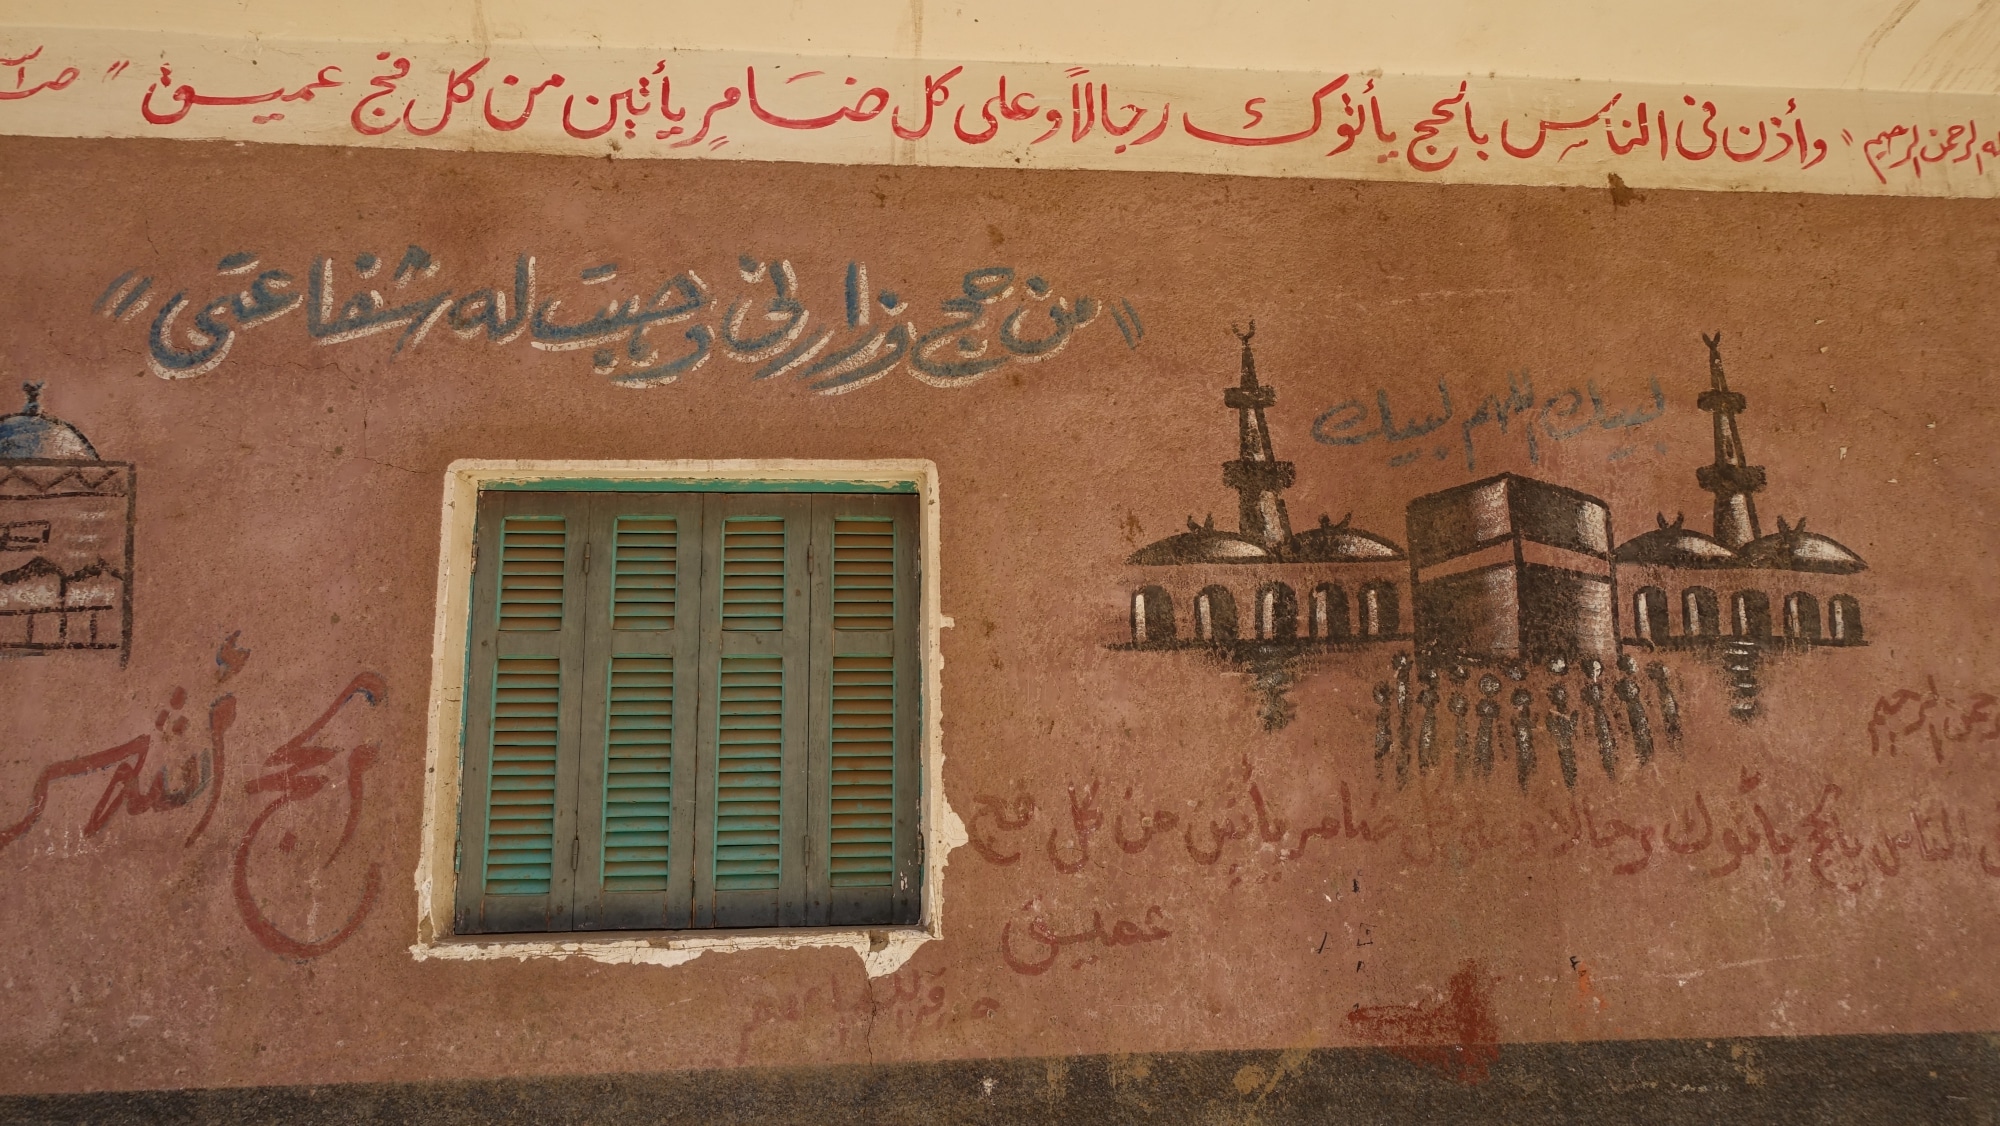 ـه الرحمن الرحيم " وأذن فى الناس بالحج يأتوك رجالاً وعلى كل ضَامرٍ يأتين من كل فج عميق " صدق
" من حج وزارنى وجبت له شفاعتى "
لبيك اللهم لبيك
الرحمن الرحيم
الناس بالحج يأتوك رجالا وعلى كل ضامر يأتين من كل فج
عميق
الحج أشهر